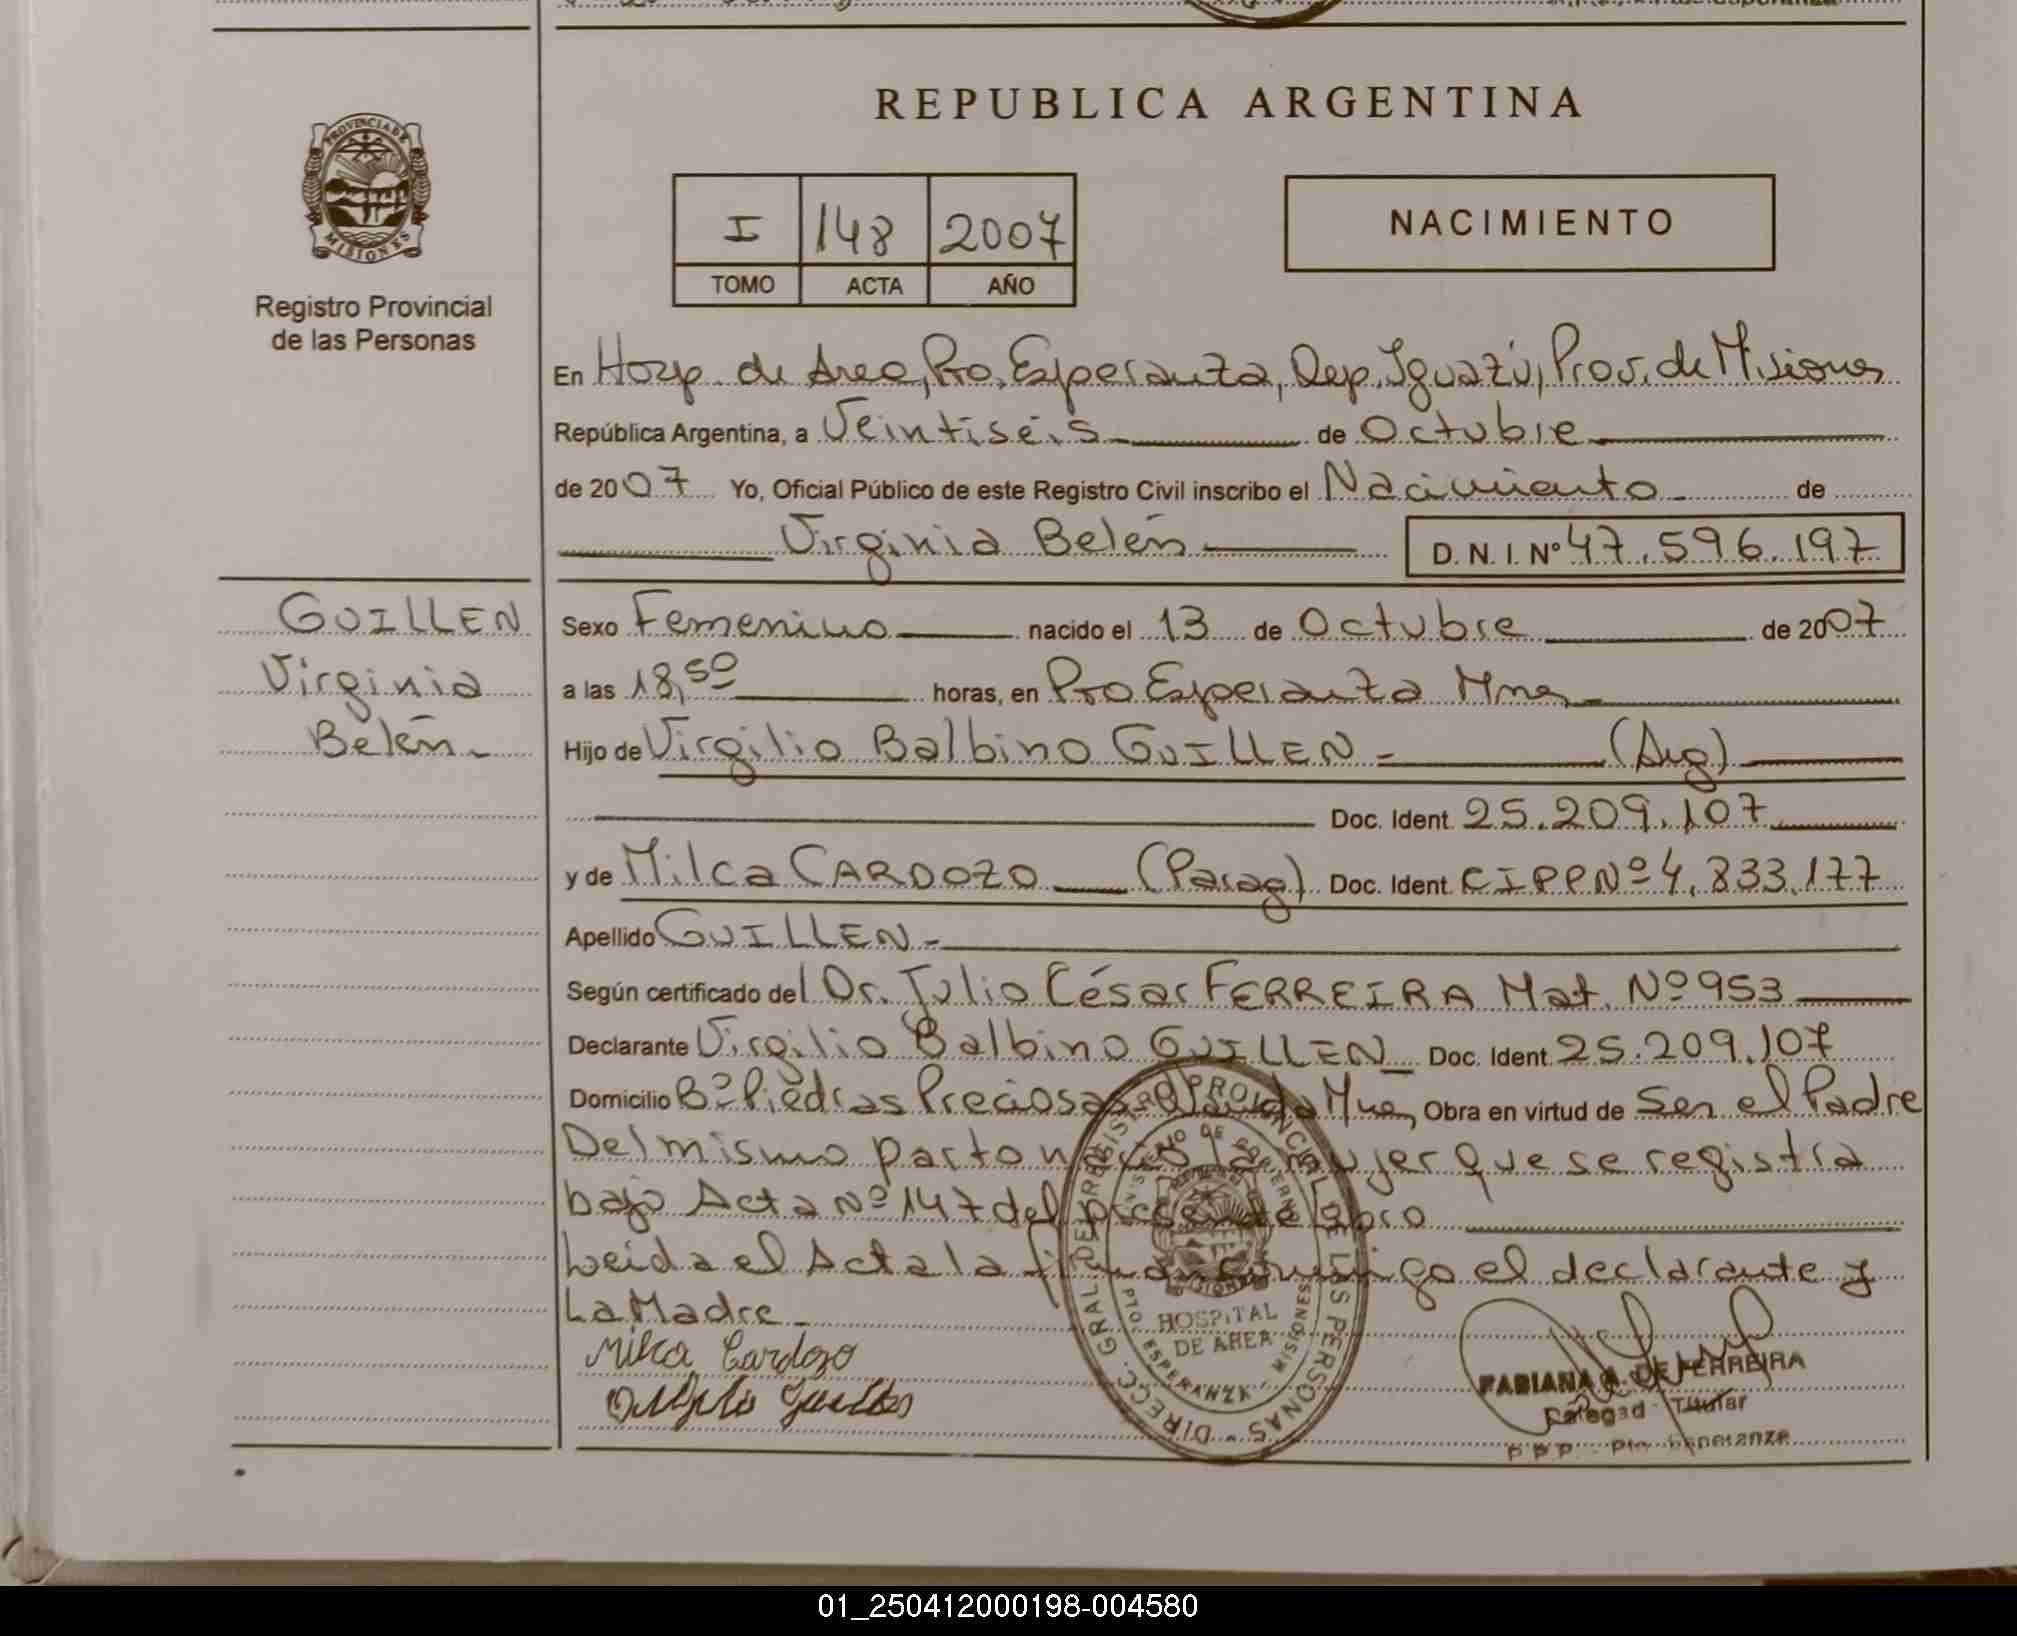 REPUBLICA ARGENTINA
PROVINCIA DE
MISIONES
Registro Provincial
de las Personas
I 148 2007
TOMO ACTA AÑO
NACIMIENTO
En Hosp. de Area, Pto. Esperanza, Dep. Iguazú, Prov. de Misiones
República Argentina, a Veintiséis de Octubre
de 2007 Yo, Oficial Público de este Registro Civil inscribo el Nacimiento de
Virginia Belén D. N. I. Nº 47.596.197
GUILLEN
Virginia
Belén
Sexo Femenino nacido el 13 de Octubre de 2007
a las 18,50 horas, en Pto Esperanza Mnes
Hijo de Virgilio Balbino GUILLEN (Arg)
Doc. Ident. 25.209.107
y de Milca CARDOZO (Parag) Doc. Ident. CIPP Nº 4.833.177
Apellido GUILLEN
Según certificado del Dr. Julio César FERREIRA Mat. Nº 953
Declarante Virgilio Balbino GUILLEN Doc. Ident. 25.209.107
Domicilio Bº Piedras Preciosas Obra en virtud de Ser el Padre
Del mismo parto nació la mujer que se registra
bajo Acta Nº 147 del presente libro
Leida el Acta la firman conmigo el declarante y
La Madre
Milca Cardozo
DIRECC. GRAL. DE REGISTRO PROVINCIAL DE LAS PERSONAS
MINISTERIO DE GOBIERNO
HOSPITAL
DE AREA
PTO. ESPERANZA - MISIONES
FABIANA A. DE FERREIRA
Delegad Titular
Pto. Esperanza
01_250412000198-004580